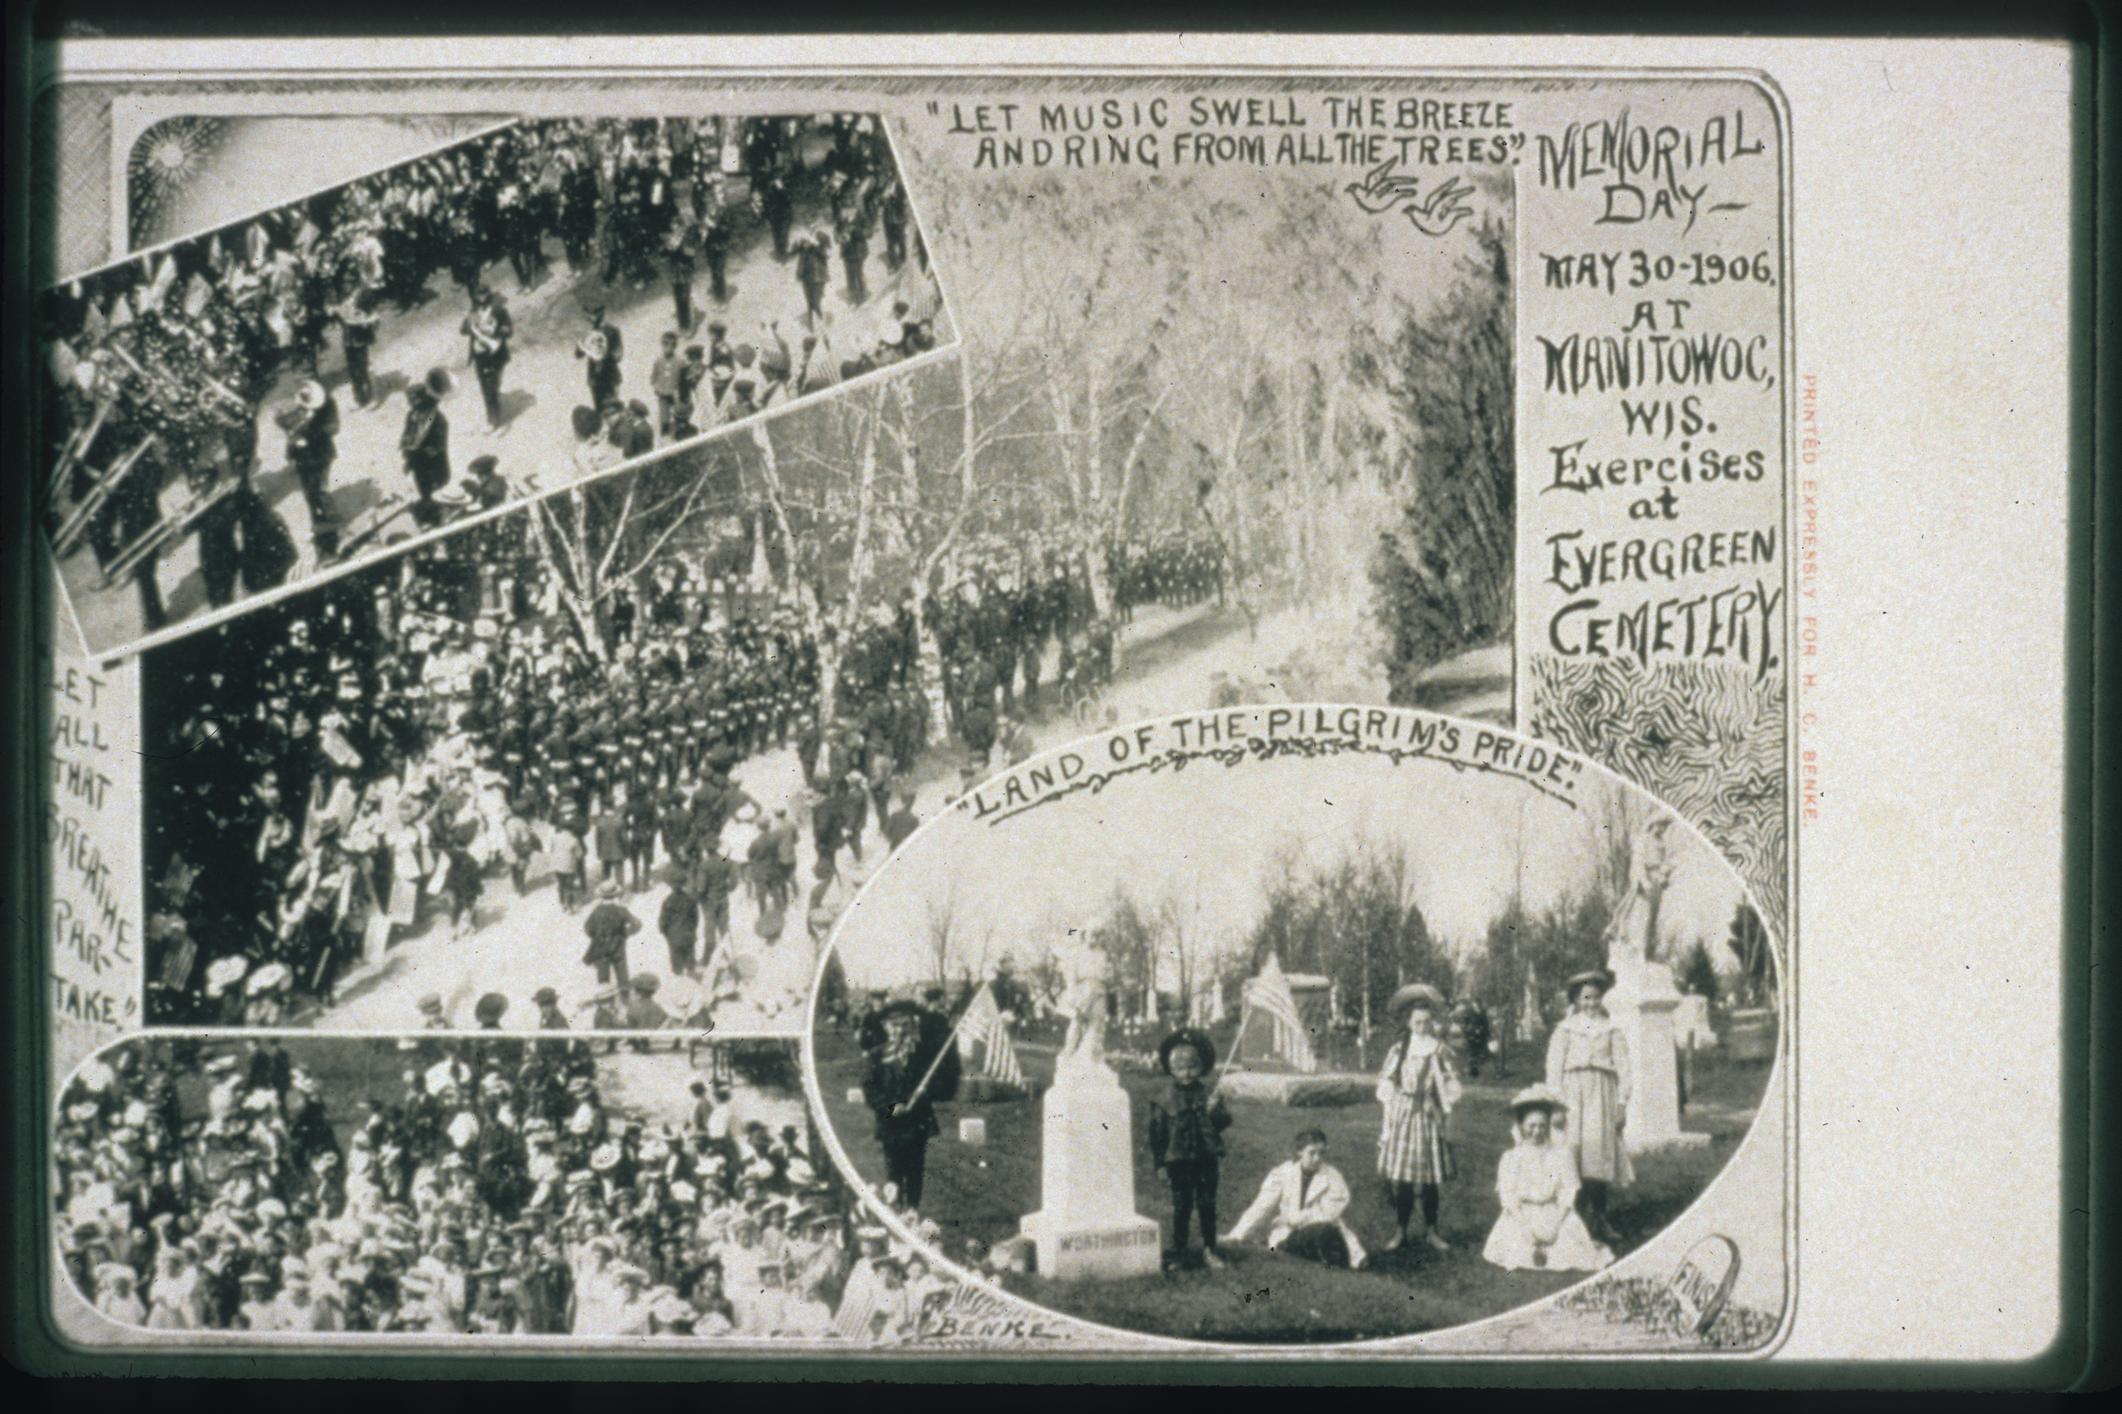 "LET MUSIC SWELL THE BREEZE
AND RING FROM ALL THE TREES".
MEMORIAL
DAY—
MAY 30-1906.
AT
MANITOWOC,
WIS.
Exercises
at
EVERGREEN
CEMETERY.
LET
ALL
THAT
BREATHE
PAR-
TAKE."
"LAND OF THE PILGRIM'S PRIDE".
WORTHINGTON
FINIS
BENKE.
PRINTED EXPRESSLY FOR H. C. BENKE.